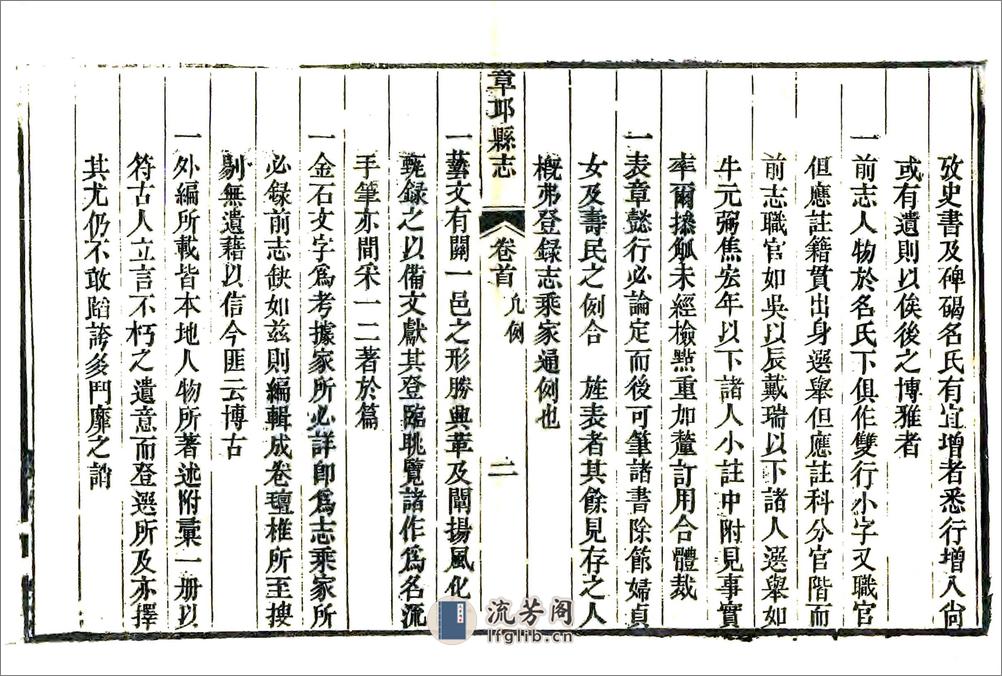 攷史書及碑碣名氏有宜增者悉行增入尙
或有遺則以俟後之博雅者
一前志人物於名氏下俱作雙行小字又職官
但應註籍貫出身選舉但應註科分官階而
前志職官如吳以辰戴瑞以下諸人選舉如
牛元弼焦宏年以下諸人小註中附見事實
率爾操觚未經檢㸃重加釐訂用合體裁
一表章懿行必論定而後可筆諸書除節婦貞
女及壽民之例合　旌表者其餘見存之人
槪弗登錄志乘家通例也
章邱縣志
卷首 凡例
二
一藝文有關一邑之形勝興革及闡揚風化
輒錄之以備文獻其登臨眺覽諸作爲名流
手筆亦間采一二著於篇
一金石文字爲考據家所必詳卽爲志乘家所
必錄前志缺如兹則編輯成卷氊椎所至搜
剔無遺藉以信今匪云博古
一外編所載皆本地人物所著述附彙一册以
符古人立言不朽之遺意而登選所及亦擇
其尤仍不敢蹈誇多鬥靡之誚
流芳阁
lfglib.cn